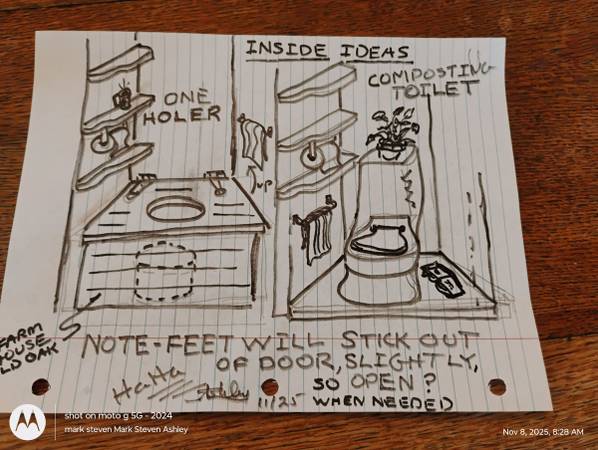 INSIDE IDEAS
COMPOSTING
TOILET
ONE
HOLER
UP
FARM
HOUSE
OLD OAK
NOTE-FEET WILL STICK OUT
OF DOOR, SLIGHTLY,
SO OPEN?
WHEN NEEDED
HaHa
Ashly 11/25
shot on moto g 5G - 2024
mark steven Mark Steven Ashley
Nov 8, 2025, 8:28 AM